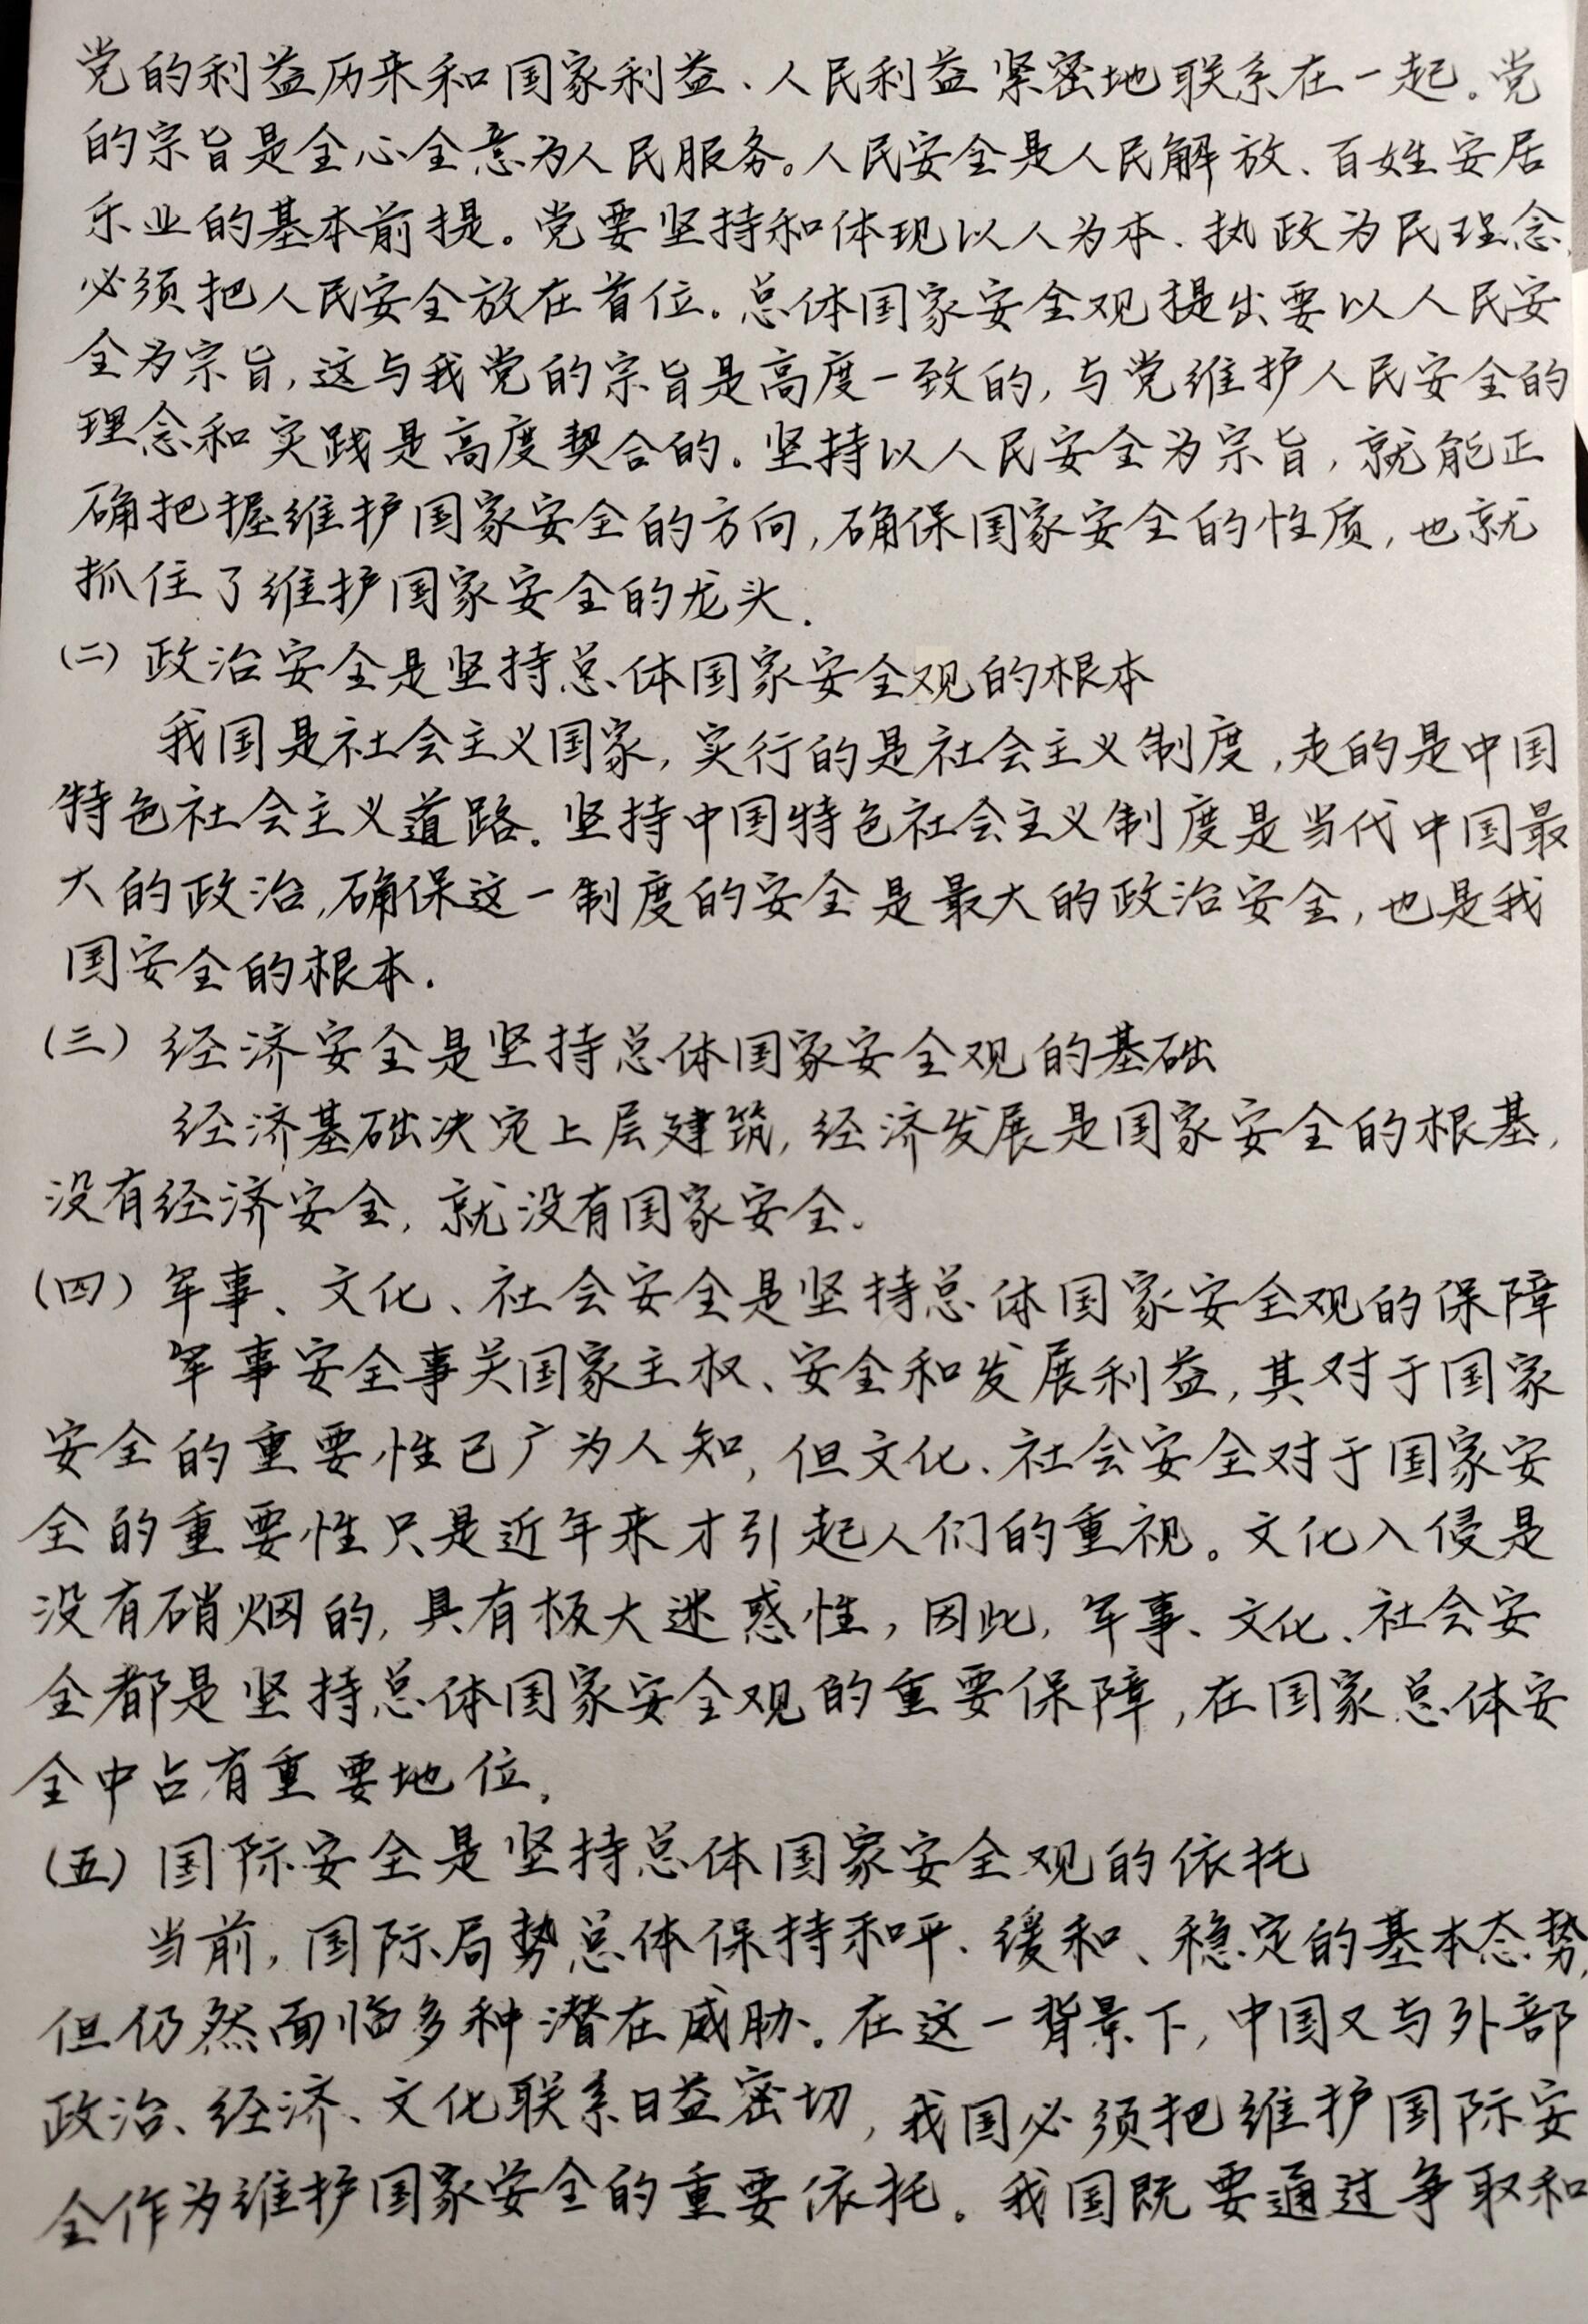 党的利益历来和国家利益、人民利益紧密地联系在一起。党
的宗旨是全心全意为人民服务。人民安全是人民解放、百姓安居
乐业的基本前提。党要坚持和体现以人为本、执政为民理念,
必须把人民安全放在首位。总体国家安全观提出要以人民安
全为宗旨,这与我党的宗旨是高度一致的,与党维护人民安全的
理念和实践是高度契合的。坚持以人民安全为宗旨,就能正
确把握维护国家安全的方向,确保国家安全的性质,也就
抓住了维护国家安全的龙头.
(二) 政治安全是坚持总体国家安全观的根本
我国是社会主义国家,实行的是社会主义制度,走的是中国
特色社会主义道路。坚持中国特色社会主义制度是当代中国最
大的政治,确保这一制度的安全是最大的政治安全,也是我
国安全的根本.
(三) 经济安全是坚持总体国家安全观的基础
经济基础决定上层建筑,经济发展是国家安全的根基,
没有经济安全,就没有国家安全。
(四) 军事、文化、社会安全是坚持总体国家安全观的保障
军事安全事关国家主权、安全和发展利益,其对于国家
安全的重要性已广为人知,但文化、社会安全对于国家安
全的重要性只是近年来才引起人们的重视。文化入侵是
没有硝烟的,具有极大迷惑性,因此,军事、文化、社会安
全都是坚持总体国家安全观的重要保障,在国家总体安
全中占有重要地位。
(五) 国际安全是坚持总体国家安全观的依托
当前,国际局势总体保持和平、缓和、稳定的基本态势,
但仍然面临多种潜在威胁。在这一背景下,中国又与外部
政治、经济、文化联系日益密切,我国必须把维护国际安
全作为维护国家安全的重要依托。我国既要通过争取和